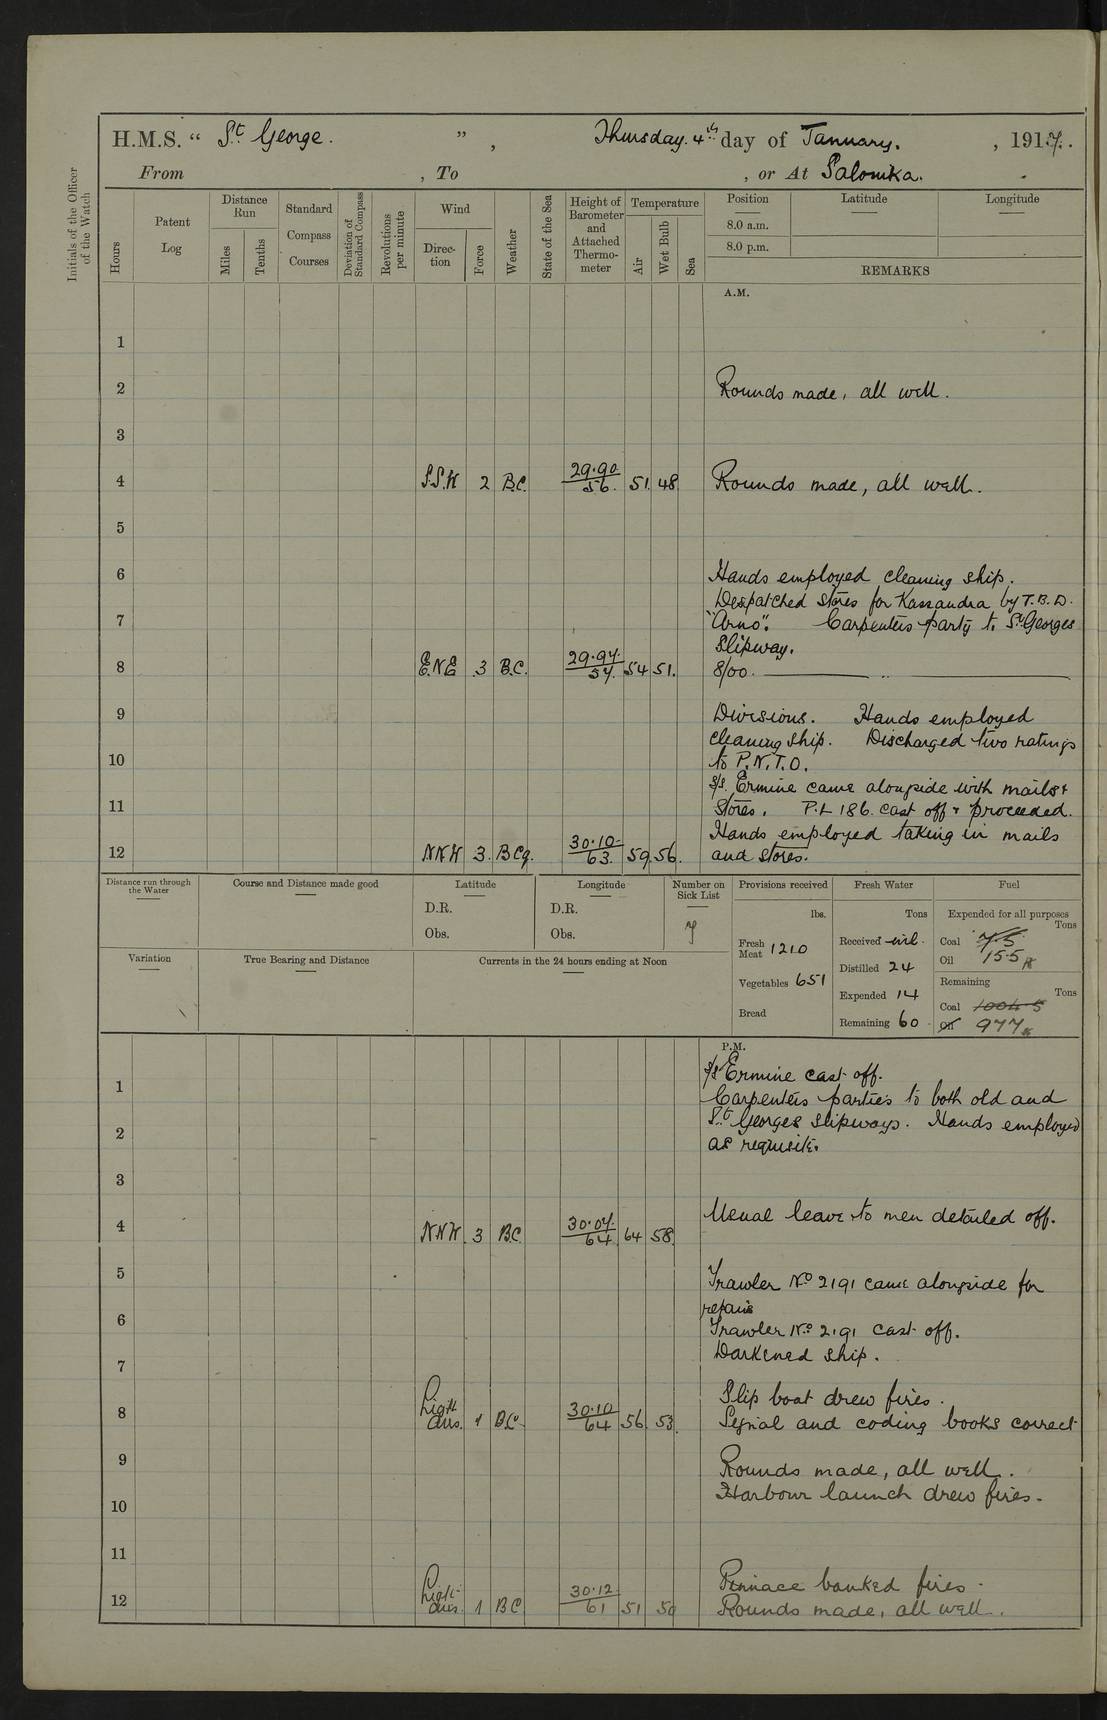 H.M.S. “ St George. ”, Thursday. 4th day of January. , 1917.
From , To , or At Salonika.
Initials of the Officer of the Watch
Hours
Patent Log
Distance Run
Miles
Tenths
Standard Compass Courses
Deviation of Standard Compass
Revolutions per minute
Wind
Direction
Force
Weather
State of the Sea
Height of Barometer and Attached Thermometer
Temperature
Air
Wet Bulb
Sea
Position
Latitude
Longitude
8.0 a.m.
8.0 p.m.
REMARKS
A.M.
1
2 Rounds made, all well.
3
4 S.S.W 2 B.C. 29.90/56. 51. 48 Rounds made, all well.
5
6 Hands employed cleaning ship.
Despatched stores for Kassandra by T.B.D.
7 "Arno". Carpenters party to St Georges
slipway.
8 E.N.E 3 B.C. 29.97/57. 54 51. 8/00. ——— „ ———
9 Divisions. Hands employed
cleaning ship. Discharged two ratings
10 to P.N.T.O.
s/s. Ermine came alongside with mails +
11 Stores. P.L 186. cast off + proceeded.
Hands employed taking in mails
12 NNW 3. BCq. 30.10/63. 59. 56. and stores.
Distance run through the Water
Course and Distance made good
Latitude
D.R.
Obs.
Longitude
D.R.
Obs.
Number on Sick List
7
Provisions received
lbs.
Fresh Meat 1210
Vegetables 651
Bread
Fresh Water
Tons
Received nil.
Distilled 24
Expended 14
Remaining 60
Fuel
Expended for all purposes
Tons
Coal 7.5
Oil 15.5
Remaining
Tons
Coal 1004.5
Oil 977
Variation
True Bearing and Distance
Currents in the 24 hours ending at Noon
P.M.
s/s Ermine cast off.
1 Carpenters parties to both old and
St Georges slipways. Hands employed
2 as requisite.
3
4 NNW. 3 B.C. 30.07./64 64 58. Usual leave to men detailed off.
5 Trawler No 2191 came alongside for
repairs
6 Trawler No 2191 cast off.
7 Darkened ship.
Slip boat drew fires.
8 Light airs. 1 B.C. 30.10/64 56. 53. Signal and coding books correct
9 Rounds made, all well.
10 Harbour launch drew fires.
11
Pinnace banked fires.
12 Light airs. 1 BC 30.12/61 51 50 Rounds made, all well.